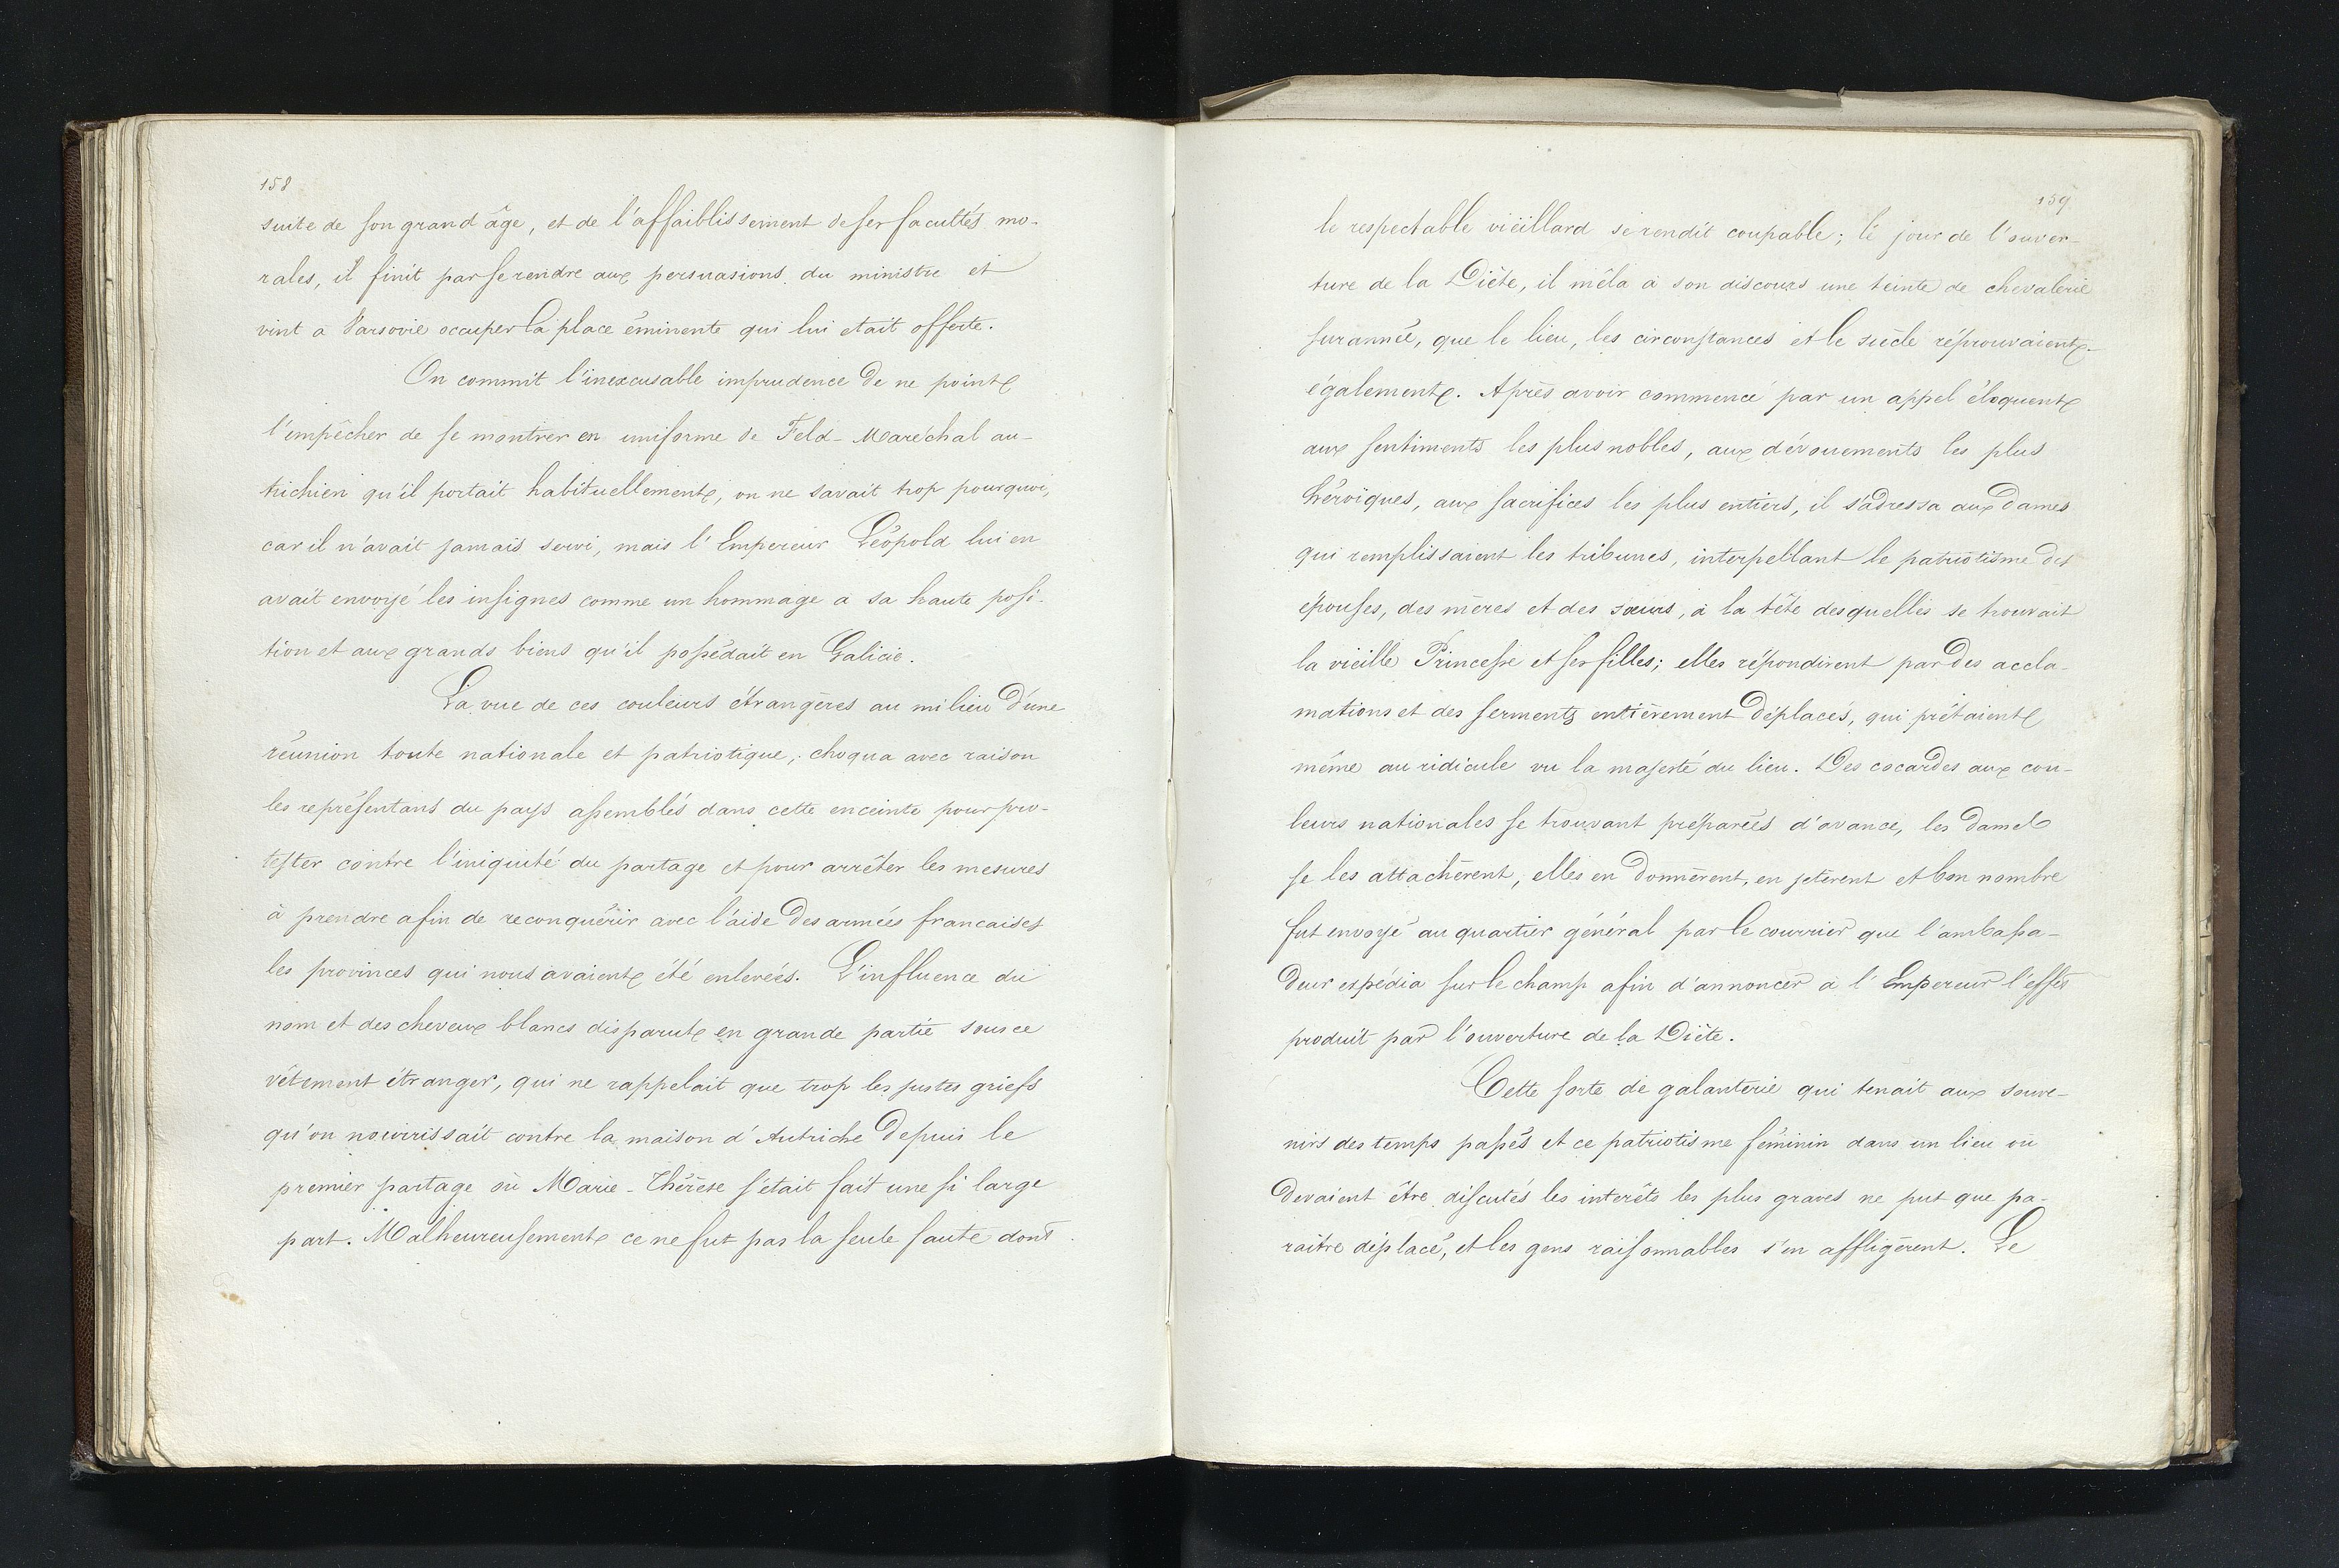 158
suite de son grand âge, et de l'affaiblissement de ses facultés mo-
rales, il finit par se rendre aux persuasions du ministre et
vint a Varsovie occuper la place éminente qui lui etait offerte.
On commit l'inexcusable imprudence de ne point
l'empêcher de se montrer en uniforme de Feld-Maréchal au-
trichien qu'il portait habituellement, on ne savait trop pourquoi,
car il n'avait jamais servi, mais l'Empereur Léopold lui en
avait envoyé les insignes comme un hommage a sa haute posi-
tion et aux grands biens qu'il possédait en Galicie.
La vue de ces couleurs étrangères au milieu d'une
réunion toute nationale et patriotique, choqua avec raison
les représentans du pays assemblés dans cette enceinte pour pro-
tester contre l'iniquité du partage et pour arrêter les mesures
à prendre afin de reconquérir avec l'aide des armées francaises
les provinces qui nous avaient été enlevées. L'influence du
nom et des cheveux blancs disparut en grande partie sous ce
vêtement étranger, qui ne rappelait que trop les justes griefs
qu'on nourrissait contre la maison d'Autriche depuis le
premier partage où Marie-Thérèse s'était fait une si large
part. Malheureusement ce ne fut pas la seule faute dont
159
le respectable vieillard se rendit coupable; le jour de l'ouver-
ture de la Diète, il mêla à son discours une teinte de chevalerie
surannée, que le lieu, les circonstances et le siècle réprouvaient
également. Après avoir commencé par un appel éloquent
aux sentiments les plus nobles, aux dévouements les plus
héroïques, aux sacrifices les plus entiers, il s'adressa aux dames
qui remplissaient les tribunes, interpellant le patriotisme des
épouses, des mères et des sœurs, à la tête desquelles se trouvait
la vieille Princesse et ses filles; elles répondirent par des accla-
mations et des serments entièrement déplacés, qui prêtaient
même au ridicule vu la majesté du lieu. Des cocardes aux cou-
leurs nationales se trouvant préparées d'avance, les dames
se les attachèrent, elles en donnèrent, en jetèrent et bon nombre
fut envoyé au quartier général par le courrier que l'ambassa-
deur expédia sur le champ afin d'annoncer à l'Empereur l'effet
produit par l'ouverture de la Diète.
Cette sorte de galanterie qui tenait aux souve-
nirs des temps passés et ce patriotisme féminin dans un lieu où
devaient être discutés les interêts les plus graves ne put que pa-
raître déplacé, et les gens raisonnables s'en affligèrent. Le